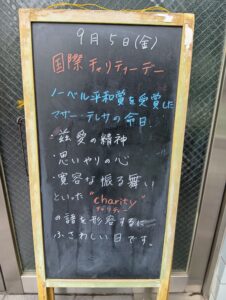 9月5日(金)
国際チャリティーデー
ノーベル平和賞を受賞した
マザー・テレサの命日
・慈愛の精神
・思いやりの心
・寛容な振る舞い
といった"charity"
チャリティー
の語を形容するに
ふさわしい日です。